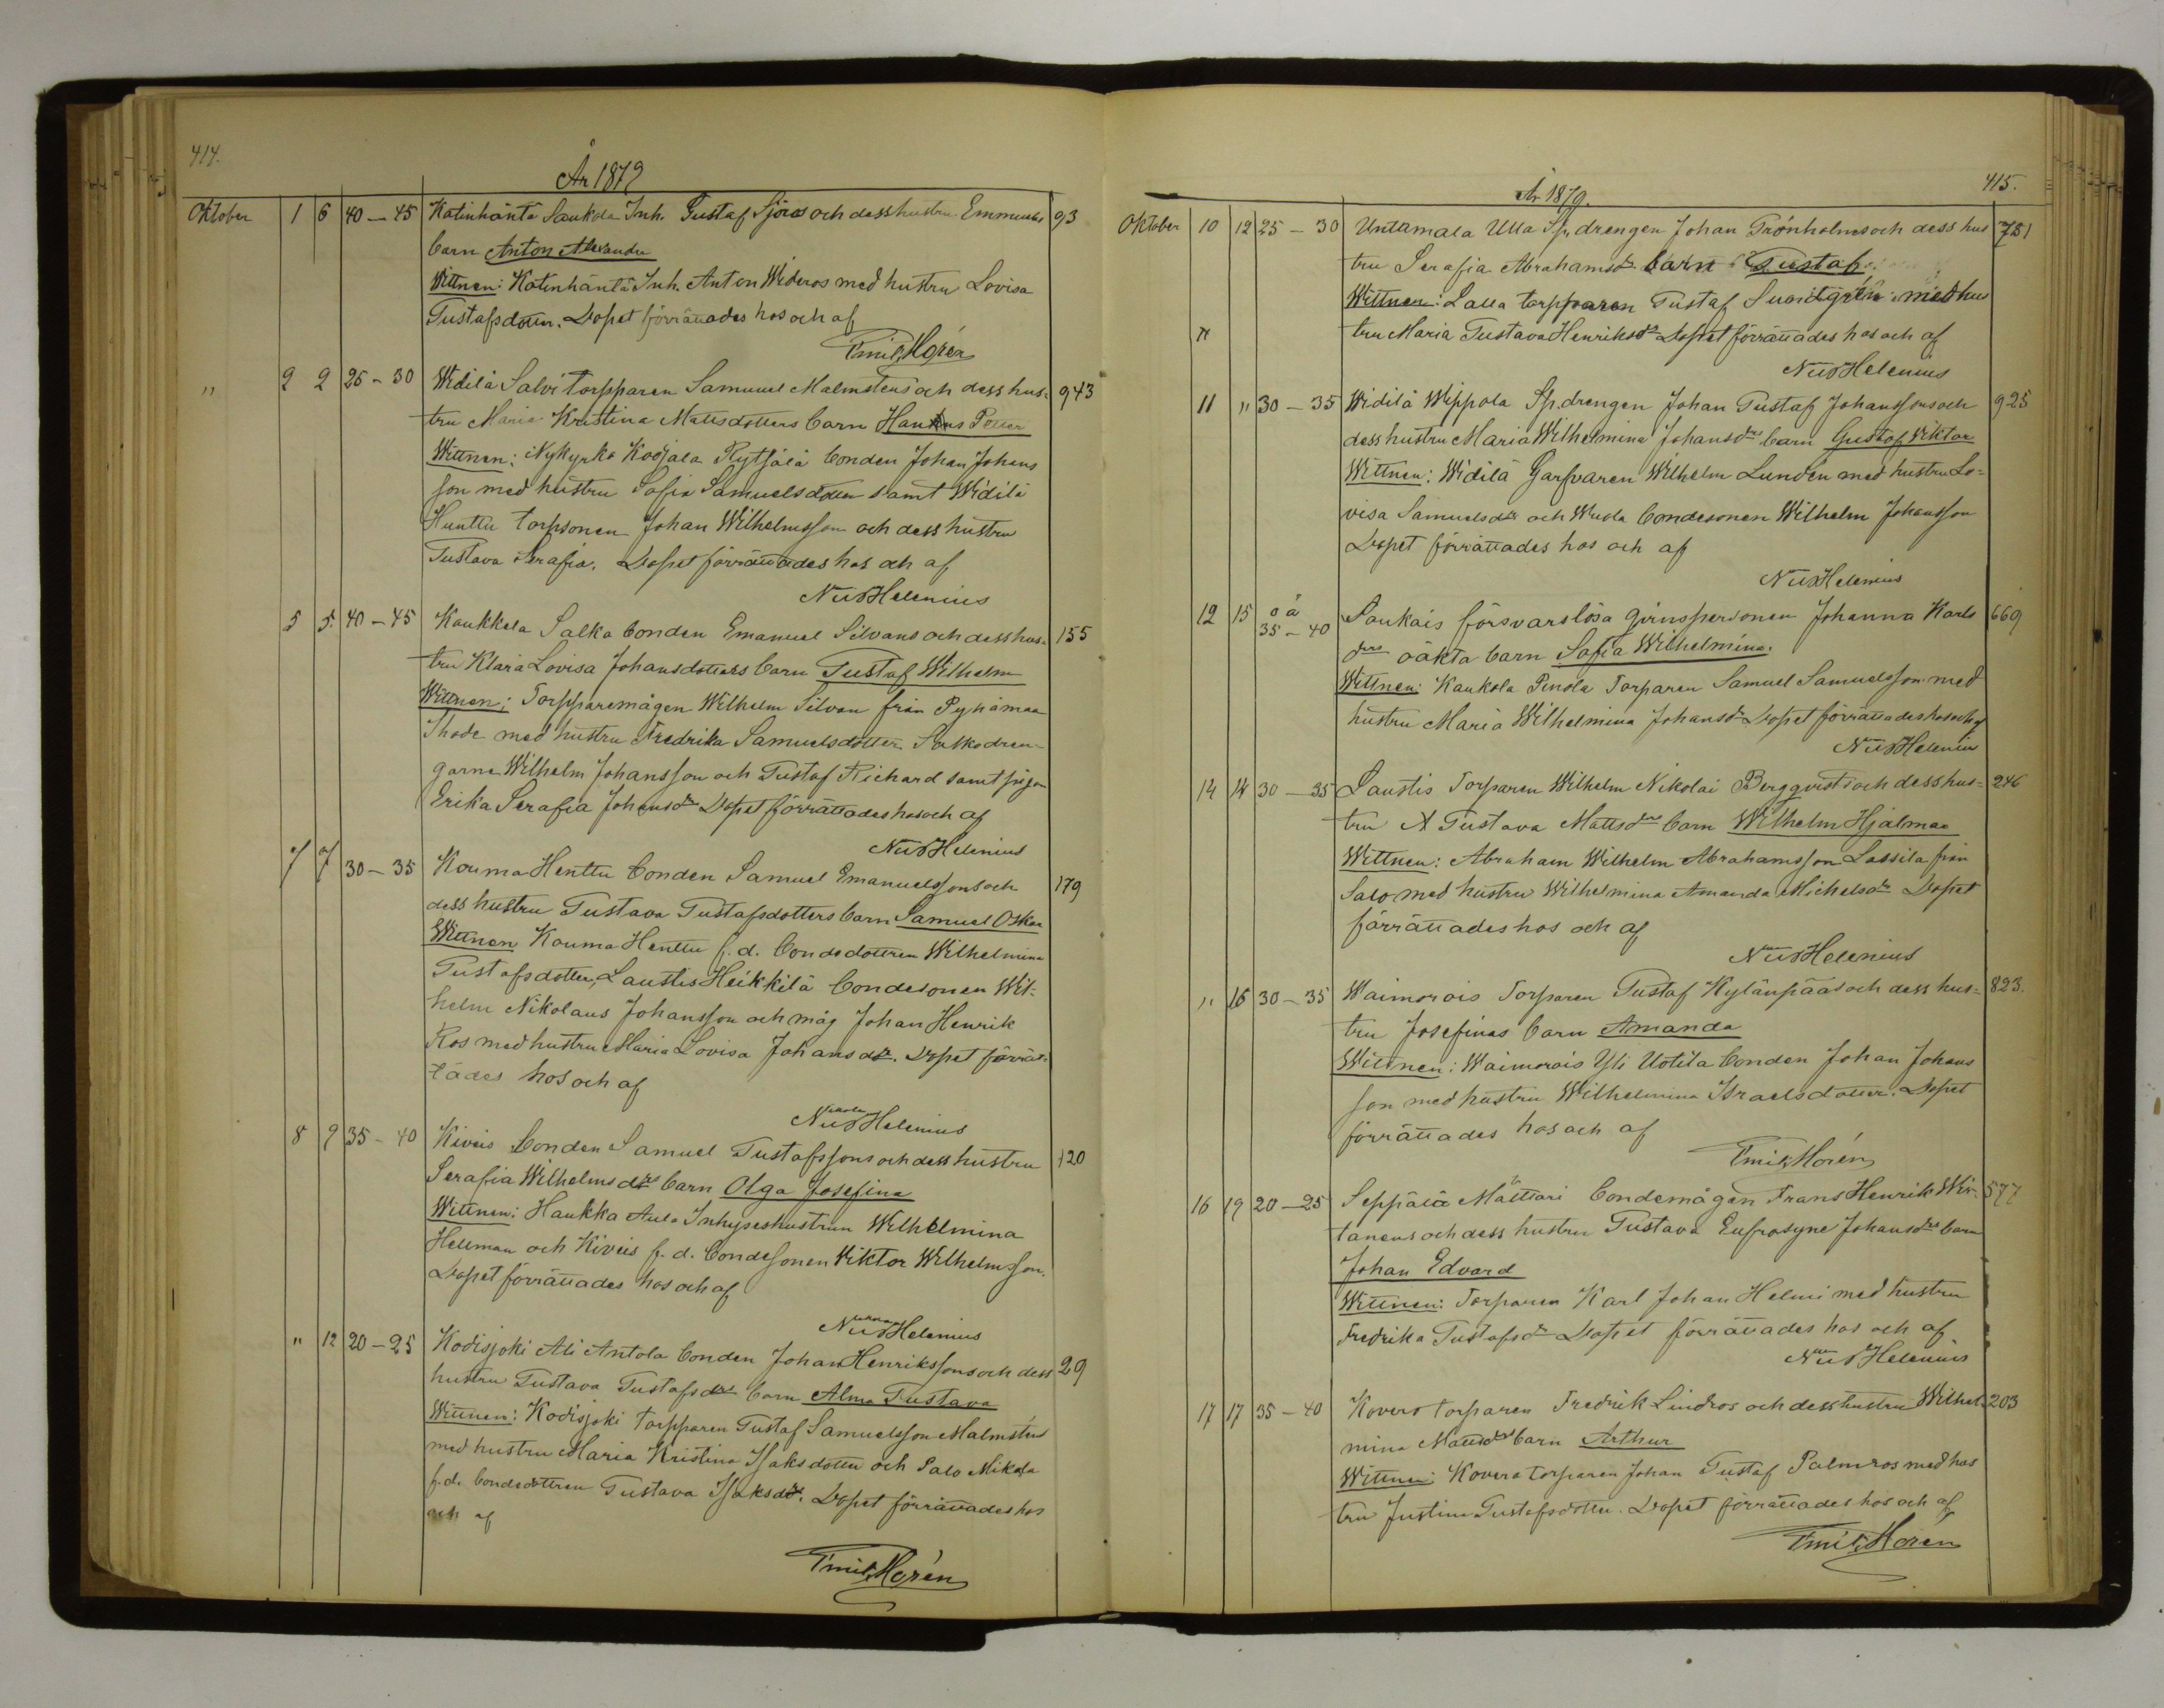 414.
År 1879
Oktober 1 6 40-45 Katinhäntä Saukola Inh. Gustaf Sjöros och dess hustru Emmeubs 93
barn Anton Alexander
Wittnen: Katinhäntä Inh. Anton Wideros med hustru Lovisa
Gustafsdotter. Dopet förrättades hos och af
Emil Morén
" 2 2 25-30 Widilä Salvi torpparen Samuel Malmstens och dess hus- 943
tru Maria Kristina Mattsdotters barn Hannus Petter
Wittnen: Nykyrko Kodjala Rytsälä bonden Johan Johans
son med hustru Sofia Samuelsdotter samt Widilä
Huntti torpsonen Johan Wilhelmsson och dess hustru
Gustava Serafia. Dopet förrättades hos och af
Nils Helenius
5 5. 40-45 Kaukkola Salka bonden Emanuel Silvans och dess hus- 155
tru Klara Lovisa Johansdotters barn Gustaf Wilhelm
Wittnen: Torpparemågen Wilhelm Silvan från Pyhämaa
Ihode med hustru Fredrika Samuelsdotter Salko dren-
garne Wilhelm Johansson och Gustaf Richard samt pigan
Erika Serafia Johansdr Dopet förrättades hos och af
Nils Helenius
7 7 30-35 Kouma Henttu bonden Samuel Emanuelssons och 179
dess hustru Gustava Gustafsdotters barn Samuel Oskar
Wittnen Kouma Henttu f.d. bondedottren Wilhelmina
Gustafsdotter, Laustis Heikkilä bondesonen Wil-
helm Nikolaus Johansson och måg Johan Henrik
Ros med hustru Maria Lovisa Johansdr. Dopet förrät-
tades hos och af
Nils Helenius
8 9 35-40 Kiveis bonden Samuel Gustafssons och dess hustru 120
Serafia Wilhelmsdrs barn Olga Josefina
Wittnen: Haukka Aula Inhyseshustrun Wilhelmina
Hellman och Kiveis f.d. bondesonen Viktor Wilhelmsson.
Dopet förrättades hos och af
Nils Helenius
" 12 20-25 Kodisjoki Ali Antola bonden Johan Henrikssons och dess 29
hustru Gustava Gustafsdrs barn Alma Gustava
Wittnen: Kodisjoki torpparen Gustaf Samuelsson Malmsten
med hustru Maria Kristina Isaksdotter och Salo Mikola
f.d. bondedottren Gustava Isaksdr. Dopet förrättades hos
och af
Emil Morén
415.
År 1879.
Oktober 10 12 25-30 Untamala Ulla Sp. drengen Johan Grönholms och dess hus 781
tru Serafia Abrahamsdr barn Gustaf
Wittnen: Lalla torpparen Gustaf med hus
tru Maria Gustava Henriksdr Dopet förrättades hos och af
Nils Helenius
11 " 30-35 Widilä Wippola Sp. drengen Johan Gustaf Johanssons och 925
dess hustru Maria Wilhelmina Johansdrs barn Gustaf Viktor
Wittnen: Widilä Garfvaren Wilhelm Lundén med hustru Lo-
visa Samuelsdr och bondesonen Wilhelm Johansson
Dopet förrättades hos och af
Nils Helenius
12 15 oä 35-40 Saukais försvarslösa qvinspersonen Johanna Karls 669
drs oäkta barn Sofia Wilhelmina.
Wittnen: Kaukola Penola Torparen Samuel Samuelsson med
hustru Maria Wilhelmina Johansdr Dopet förrättades hos och af
Nils Helenius
14 14 30-35 Laustis Torparen Wilhelm Nikolai Bergqvists och dess hus- 246
tru A Gustava Mattsdrs barn Wilhelm Hjalmar
Wittnen: Abraham Wilhelm Abrahamsson Lassila från
Salo med hustru Wilhelmina Amanda Michelsdr Dopet
förrättades hos och af
Nils Helenius
" 16 30-35 Waimorois Torparen Gustaf Kylänpääs och dess hus- 823.
tru Josefinas barn Amanda
Wittnen: Waimorois Yli Uotila bonden Johan Johans
son med hustru Wilhelmina Israelsdotter. Dopet
förrättades hos och af
Emil Morén
16 19 20-25 Seppälä Mättäri bondemågen Frans Henrik Wir- 577
tanens och dess hustru Gustava Eufrosyne Johansdrs barn
Johan Edvard
Wittnen: Torparen Karl Johan Helmi med hustru
Fredrika Gustafsdr Dopet förrättades hos och af
Nils Helenius
17 17 35-40 Kovero torparen Fredrik Lindros och dess hustru Wilhel- 203
mina Mattsdrs barn Arthur
Wittnen: Kovero torparen Johan Gustaf Palmros med hus
tru Justina Gustafsdotter. Dopet förrättades hos och af
Emil Morén